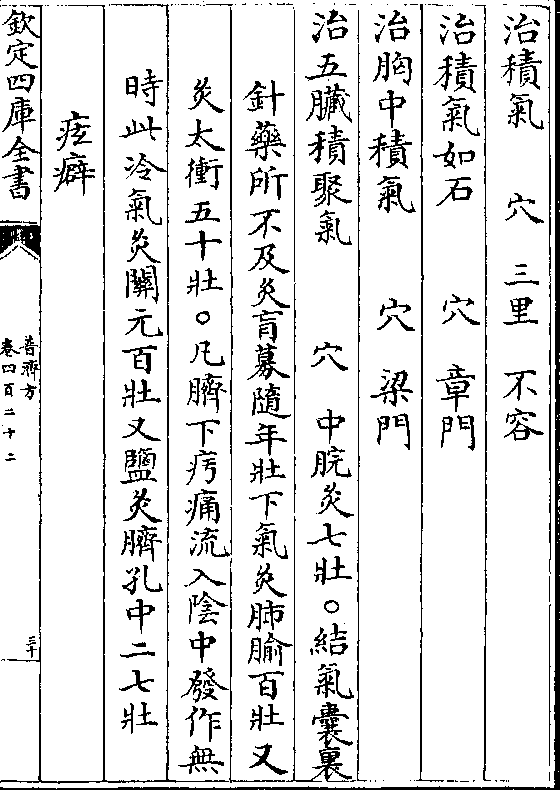 治積氣　穴　三里　不容
治積氣如石　穴　章門
治胸中積氣　穴　梁門
治五臟積聚氣　穴　中脘灸七壯。結氣囊裏
針藥所不及灸肓募隨年壯下氣灸肺腧百壯又
灸太衝五十壯。凡臍下㽱痛流入陰中發作無
時此冷氣灸關元百壯又鹽灸臍孔中二七壯
痃癖
欽定四庫全書
普濟方
卷四百二十二
三十